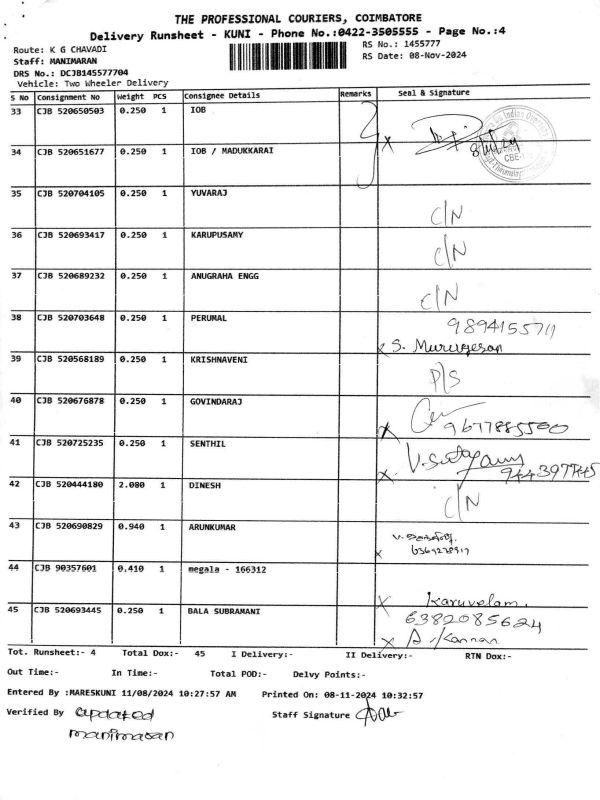 THE PROFESSIONAL COURIERS, COIMBATORE
Delivery Runsheet - KUNI - Phone No.:0422-3505555 - Page No.:4
Route: K G CHAVADI
RS No.: 1455777
Staff: MANIMARAN
RS Date: 08-Nov-2024
DRS No.: DCJB145577704
Vehicle: Two Wheeler Delivery
S No Consignment No Weight PCS Consignee Details Remarks Seal & Signature
33 CJB 520650503 0.250 1 IOB
34 CJB 520651677 0.250 1 IOB / MADUKKARAI
35 CJB 520704105 0.250 1 YUVARAJ C/N
36 CJB 520693417 0.250 1 KARUPUSAMY C/N
37 CJB 520689232 0.250 1 ANUGRAHA ENGG C/N
38 CJB 520703648 0.250 1 PERUMAL 9894155711
x S. Murugesan
39 CJB 520568189 0.250 1 KRISHNAVENI P/S
40 CJB 520676878 0.250 1 GOVINDARAJ x 9677885500
41 CJB 520725235 0.250 1 SENTHIL x
42 CJB 520444180 2.080 1 DINESH C/N
43 CJB 520690829 0.940 1 ARUNKUMAR
x
44 CJB 90357601 0.410 1 megala - 166312
x Karuvelam.
45 CJB 520693445 0.250 1 BALA SUBRAMANI 6382085624
x A. Kannan
Tot. Runsheet:- 4 Total Dox:- 45 I Delivery:- II Delivery:- RTN Dox:-
Out Time:- In Time:- Total POD:- Delvy Points:-
Entered By :MARESKUNI 11/08/2024 10:27:57 AM Printed On: 08-11-2024 10:32:57
Verified By updated Staff Signature
manimaran